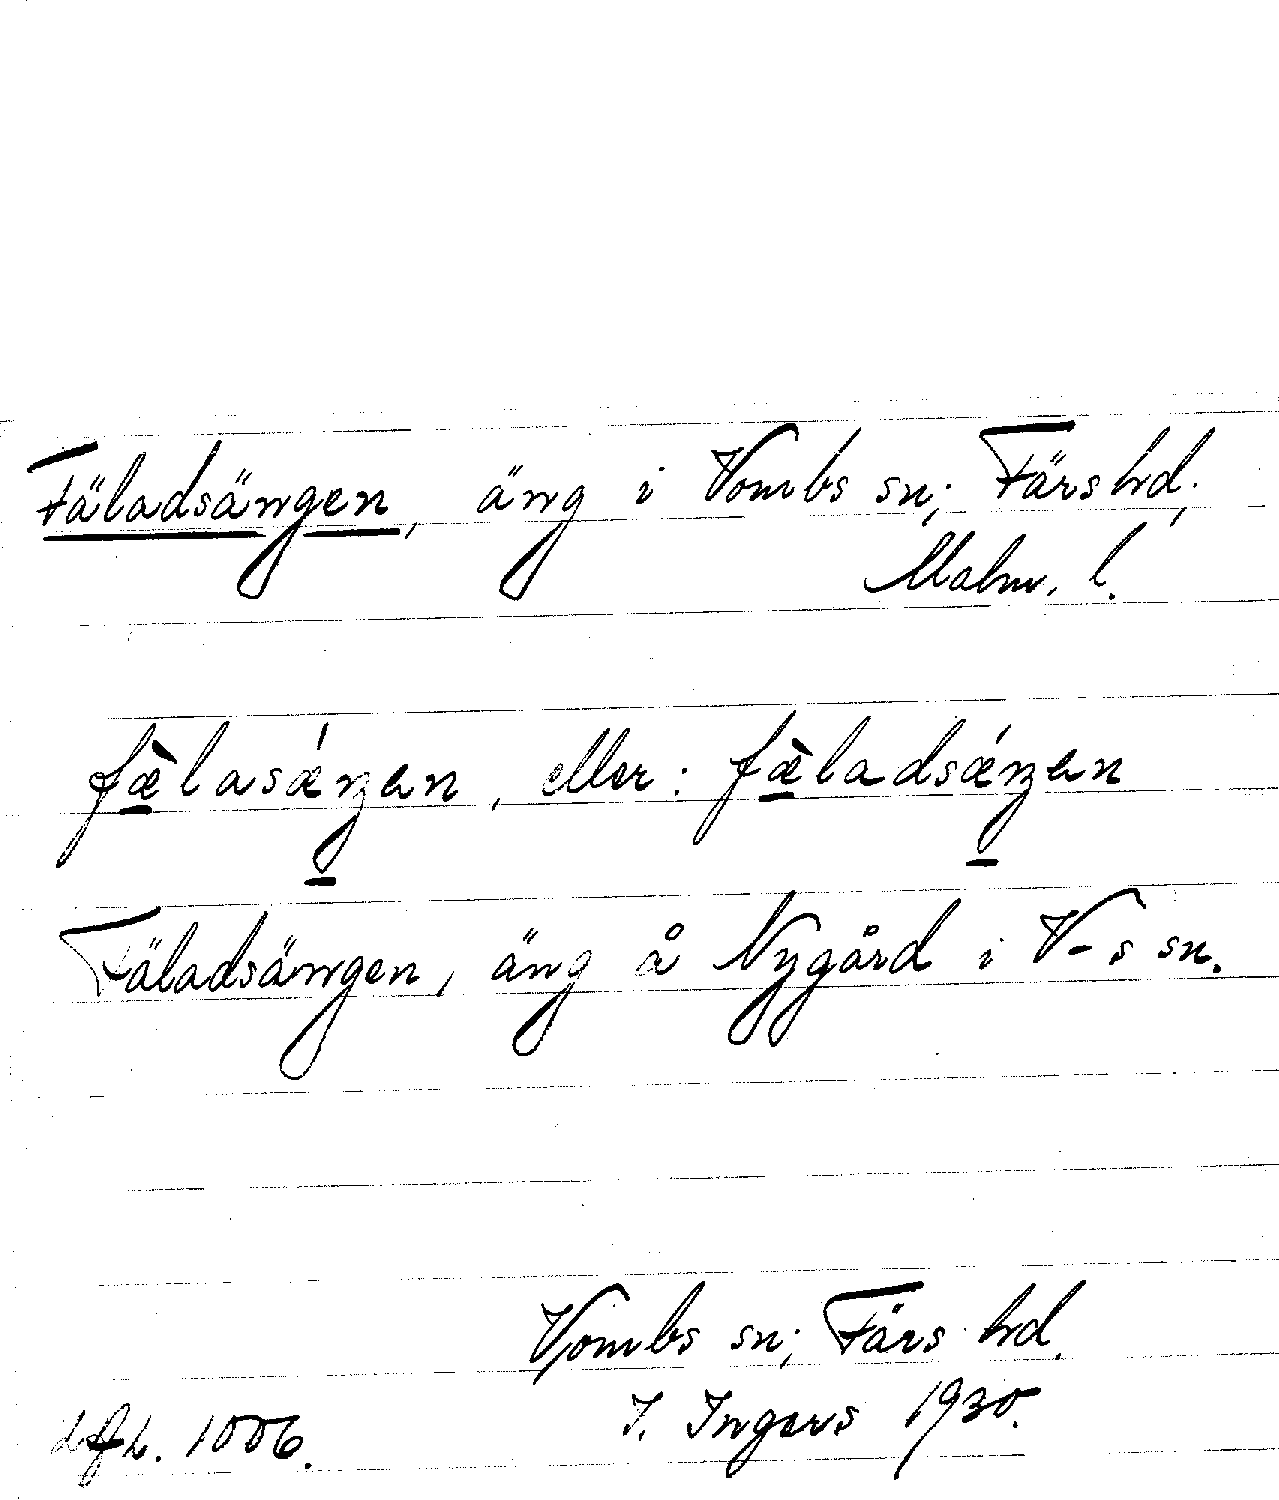 Fäladsängen, äng i Vombs sn; Färs hd;
Malm. l.
fæ̀lasǽŋen, eller: fæ̀ladsǽŋen
Fäladsängen, äng å Nygård i V-s sn.
Vombs sn; Färs hd.
I. Ingers 1930.
1006.